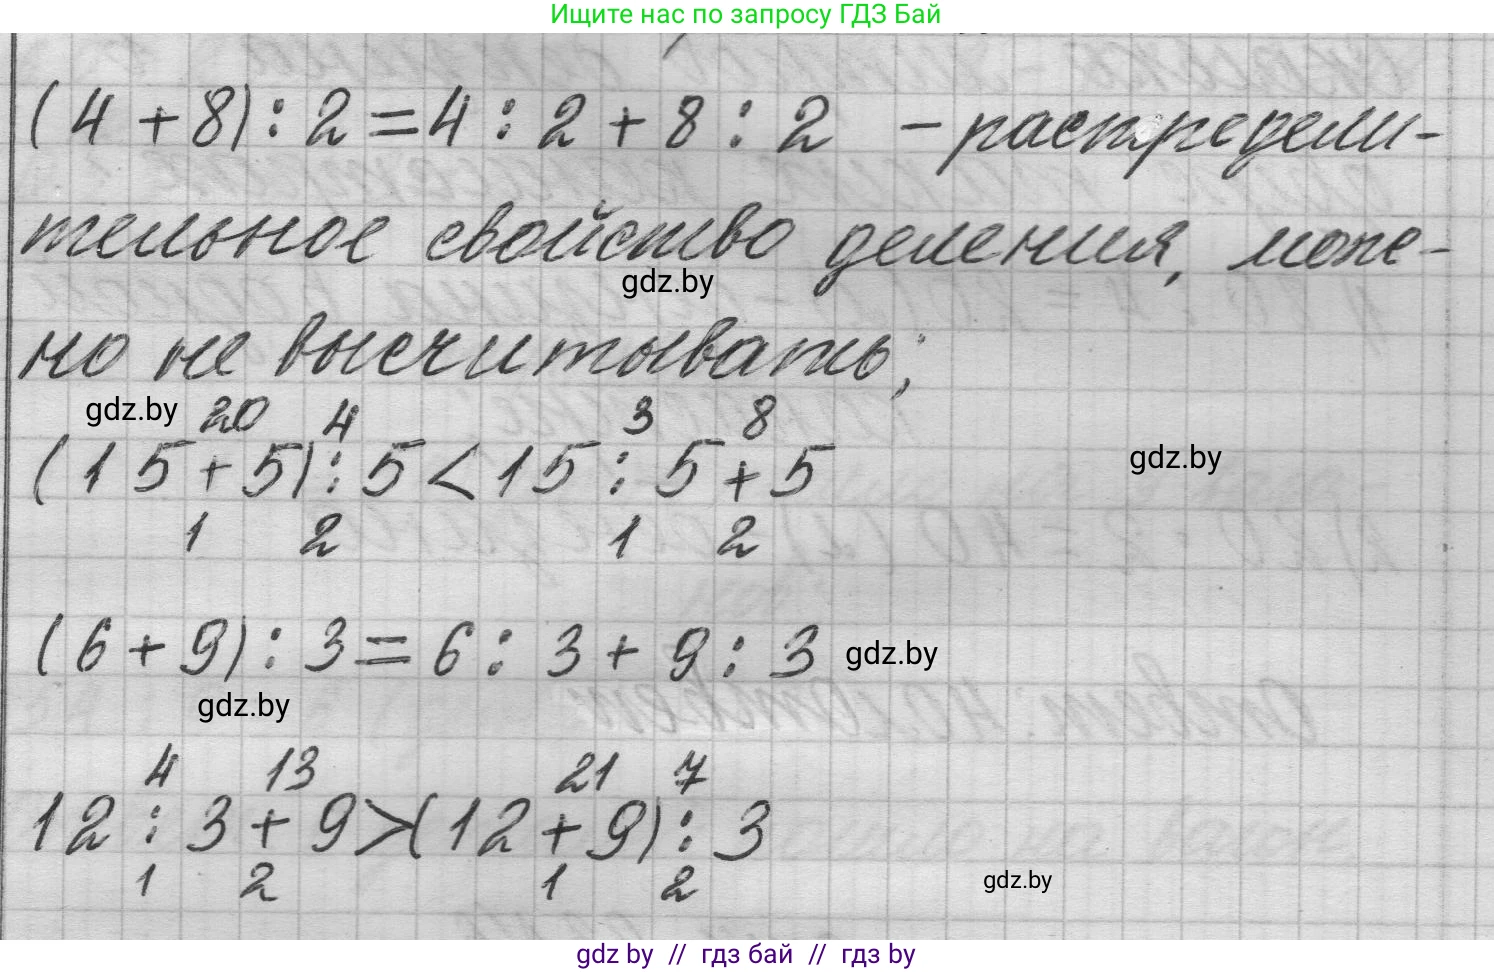 Ищите нас по запросу ГДЗ Бай
(4+8):2=4:2+8:2 - распредели-
тельное свойство деления, мож-
но не высчитывать;
gdz.by
gdz.by 20 4 3 8
(15+5):5<15:5+5
gdz.by
1 2 1 2
(6+9):3=6:3+9:3
gdz.by
gdz.by
4 13 21 7
12:3+9>(12+9):3
1 2 1 2
gdz.by
gdz by // гдз бай // гдз by